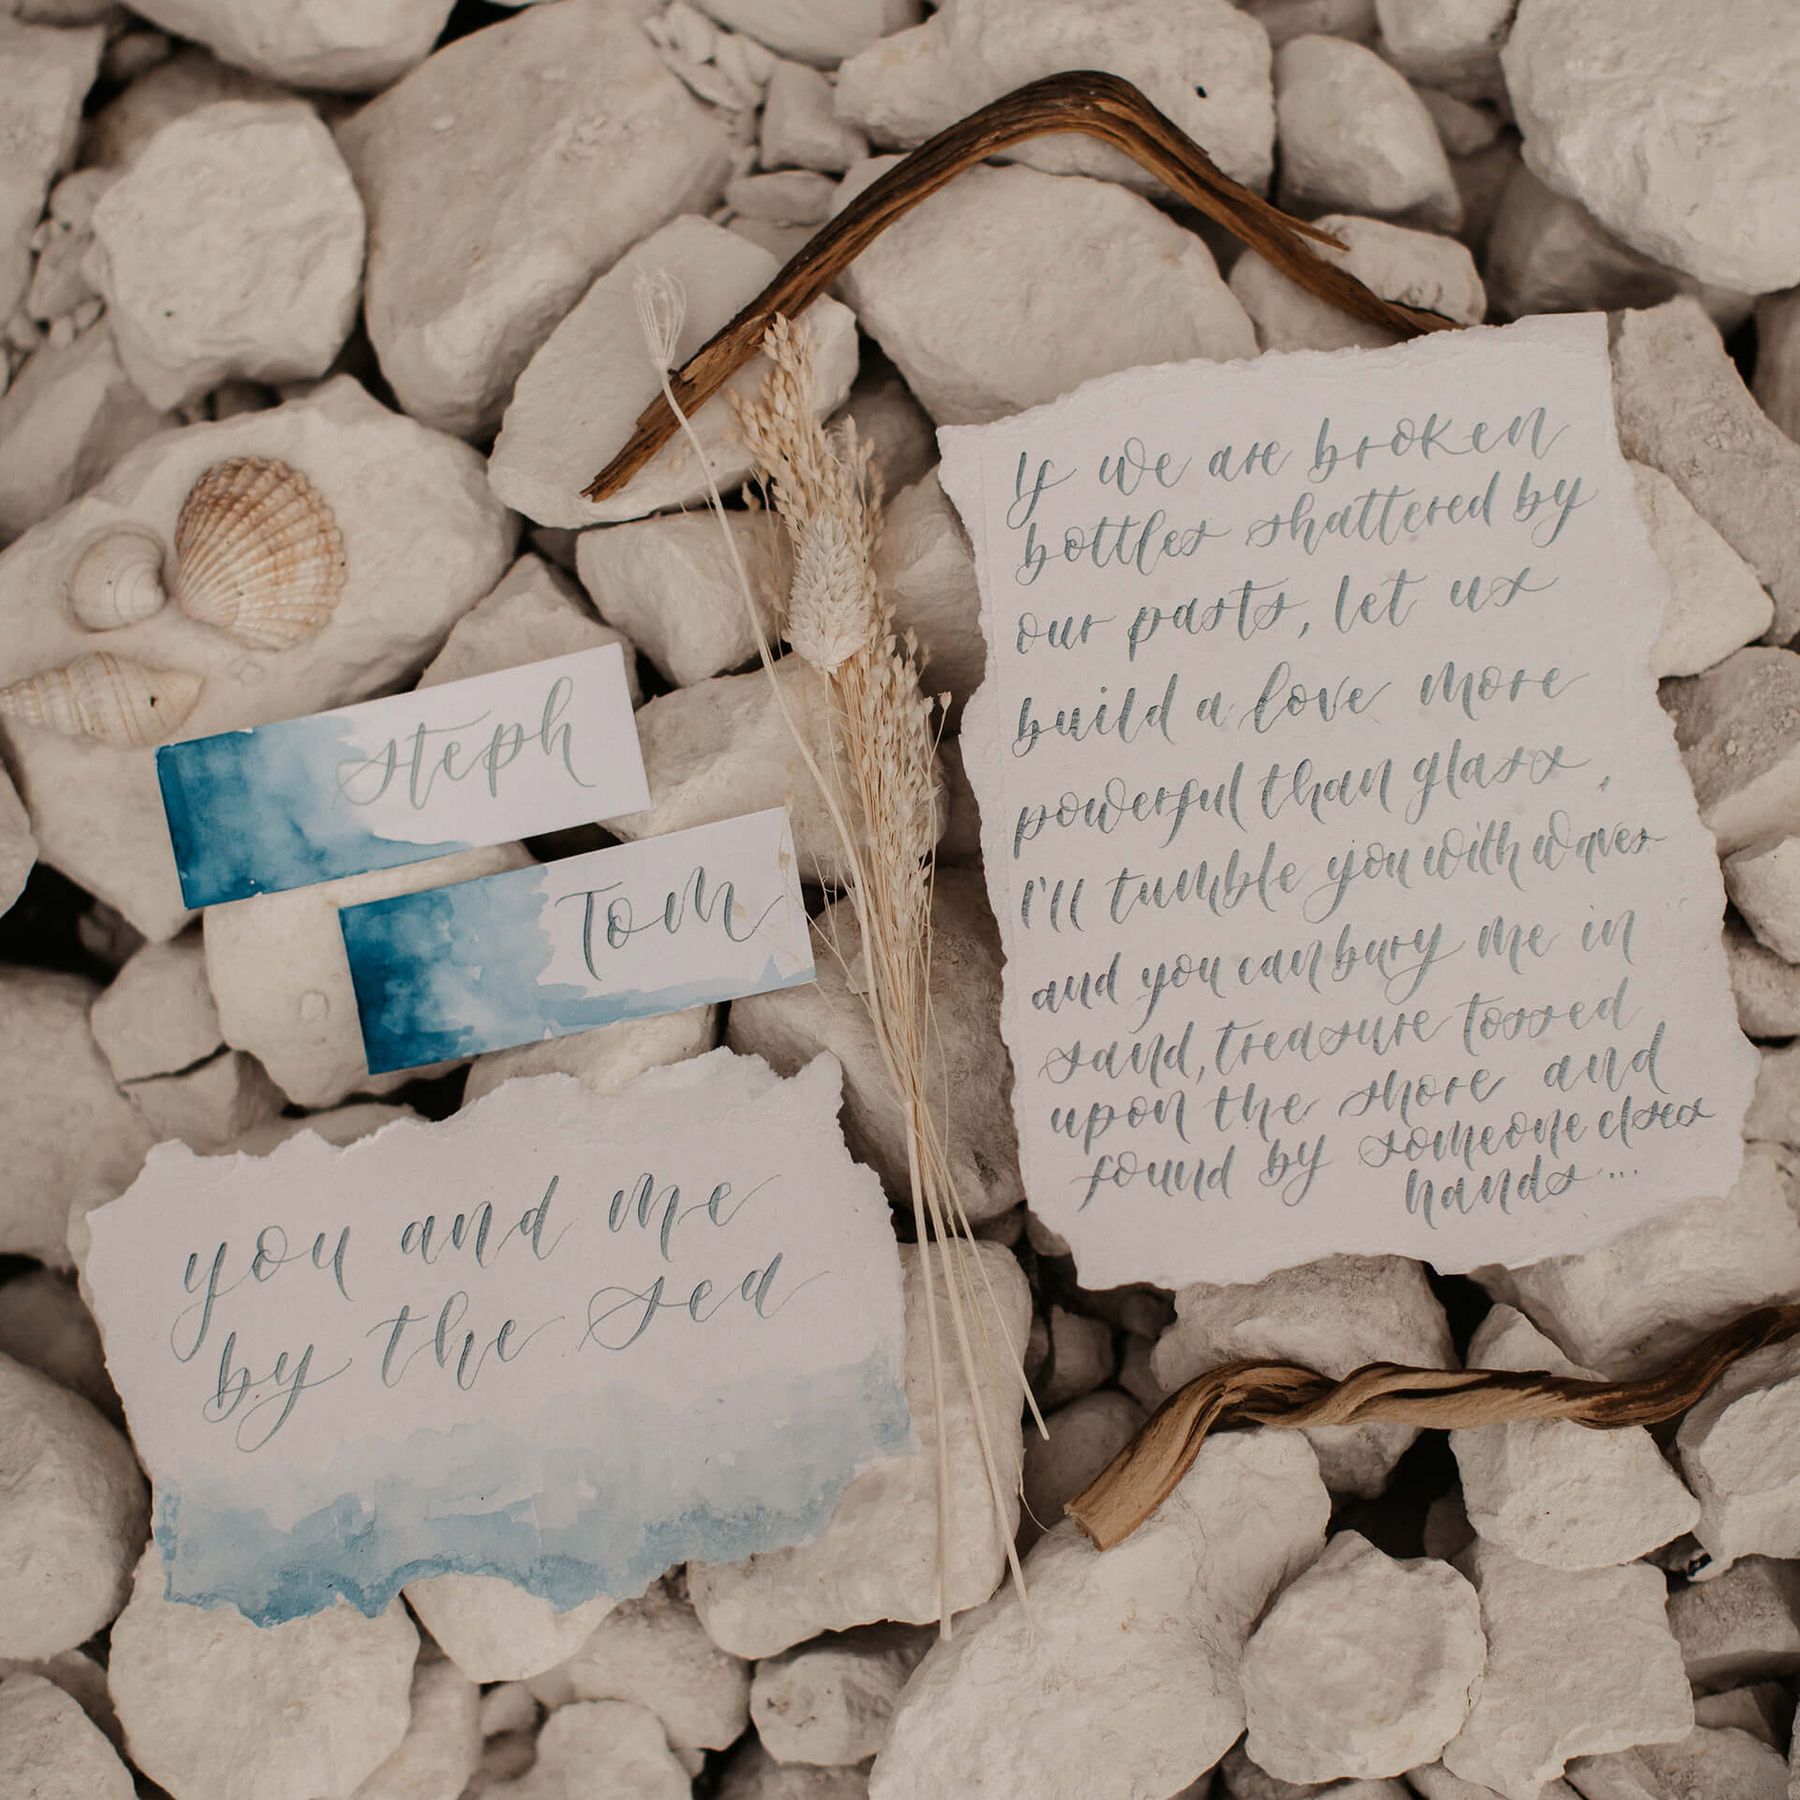 steph
Tom
you and me
by the sea
If we are broken
bottles shattered by
our pasts, let us
build a love more
powerful than glass,
I'll tumble you with waves
and you can bury me in
sand, treasure tossed
upon the shore and
found by someone elses
hands...